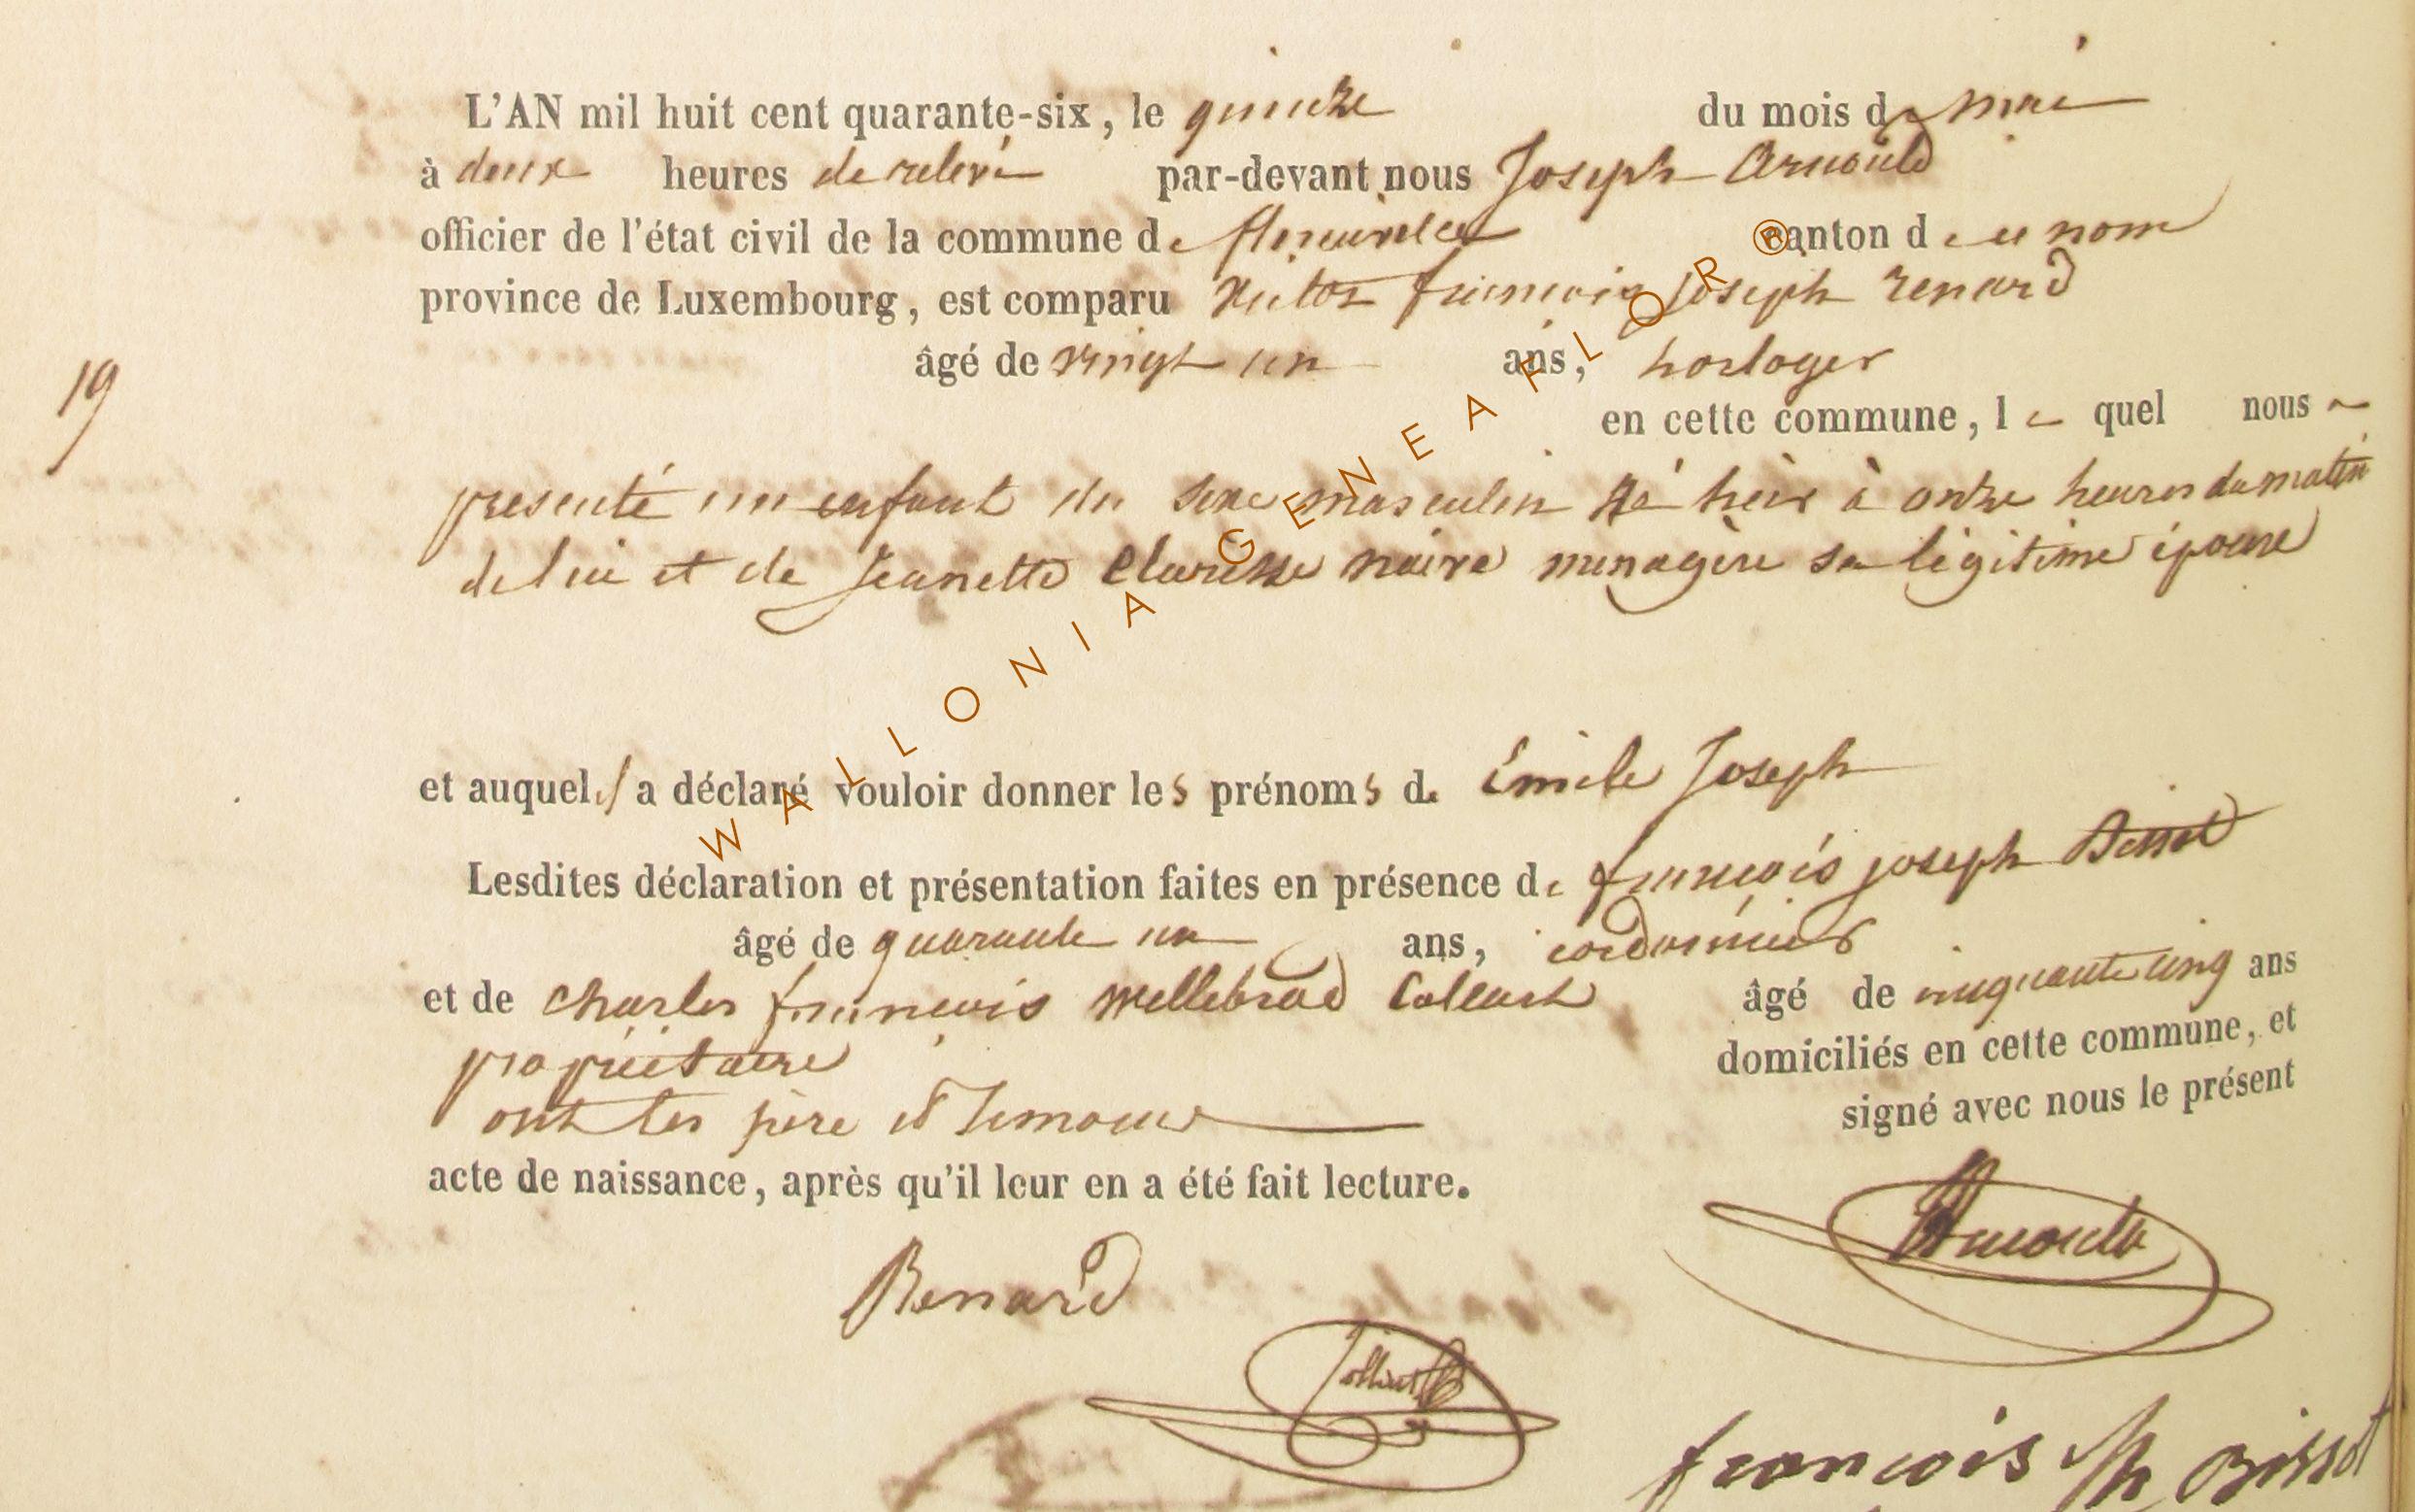 L'AN mil huit cent quarante-six, le quinze du mois de mai
à deux heures de relevé par-devant nous Joseph Arnould
officier de l'état civil de la commune de florenville canton de ce nom
province de Luxembourg, est comparu Victor françois Joseph renard
âgé de vingt un ans, horloger
19
en cette commune, le quel nous a
presenté un enfant du sexe masculin né hier à onze heures du matin
de lui et de Jeanette Clarisse noire menagère sa légitime épouse
et auquel il a déclaré vouloir donner les prénoms de Émile Joseph
Lesdites déclaration et présentation faites en présence de françois joseph Bissot
âgé de quarante un ans, cordonnier
et de Charles françois Wellebrod Collart âgé de cinquante cinq ans
propriétaire domiciliés en cette commune, et
ont les père et temoins signé avec nous le présent
acte de naissance, après qu'il leur en a été fait lecture.
Arnould
Renard
Collart
francois Jph Bissot
WALLONIA GENEAFLOR ®